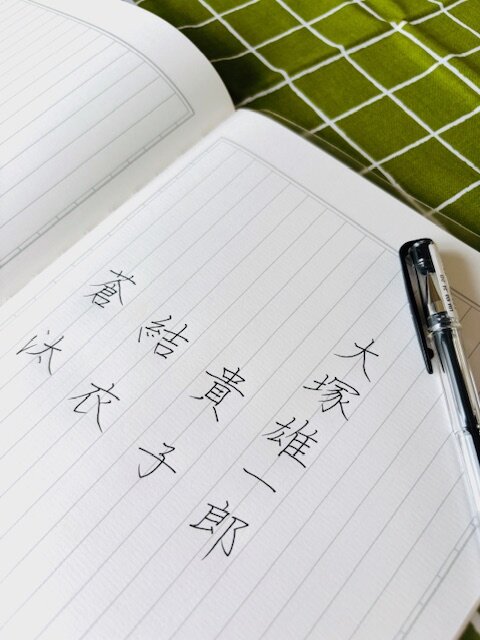 大塚雄一郎
貴子
結衣
蒼汰